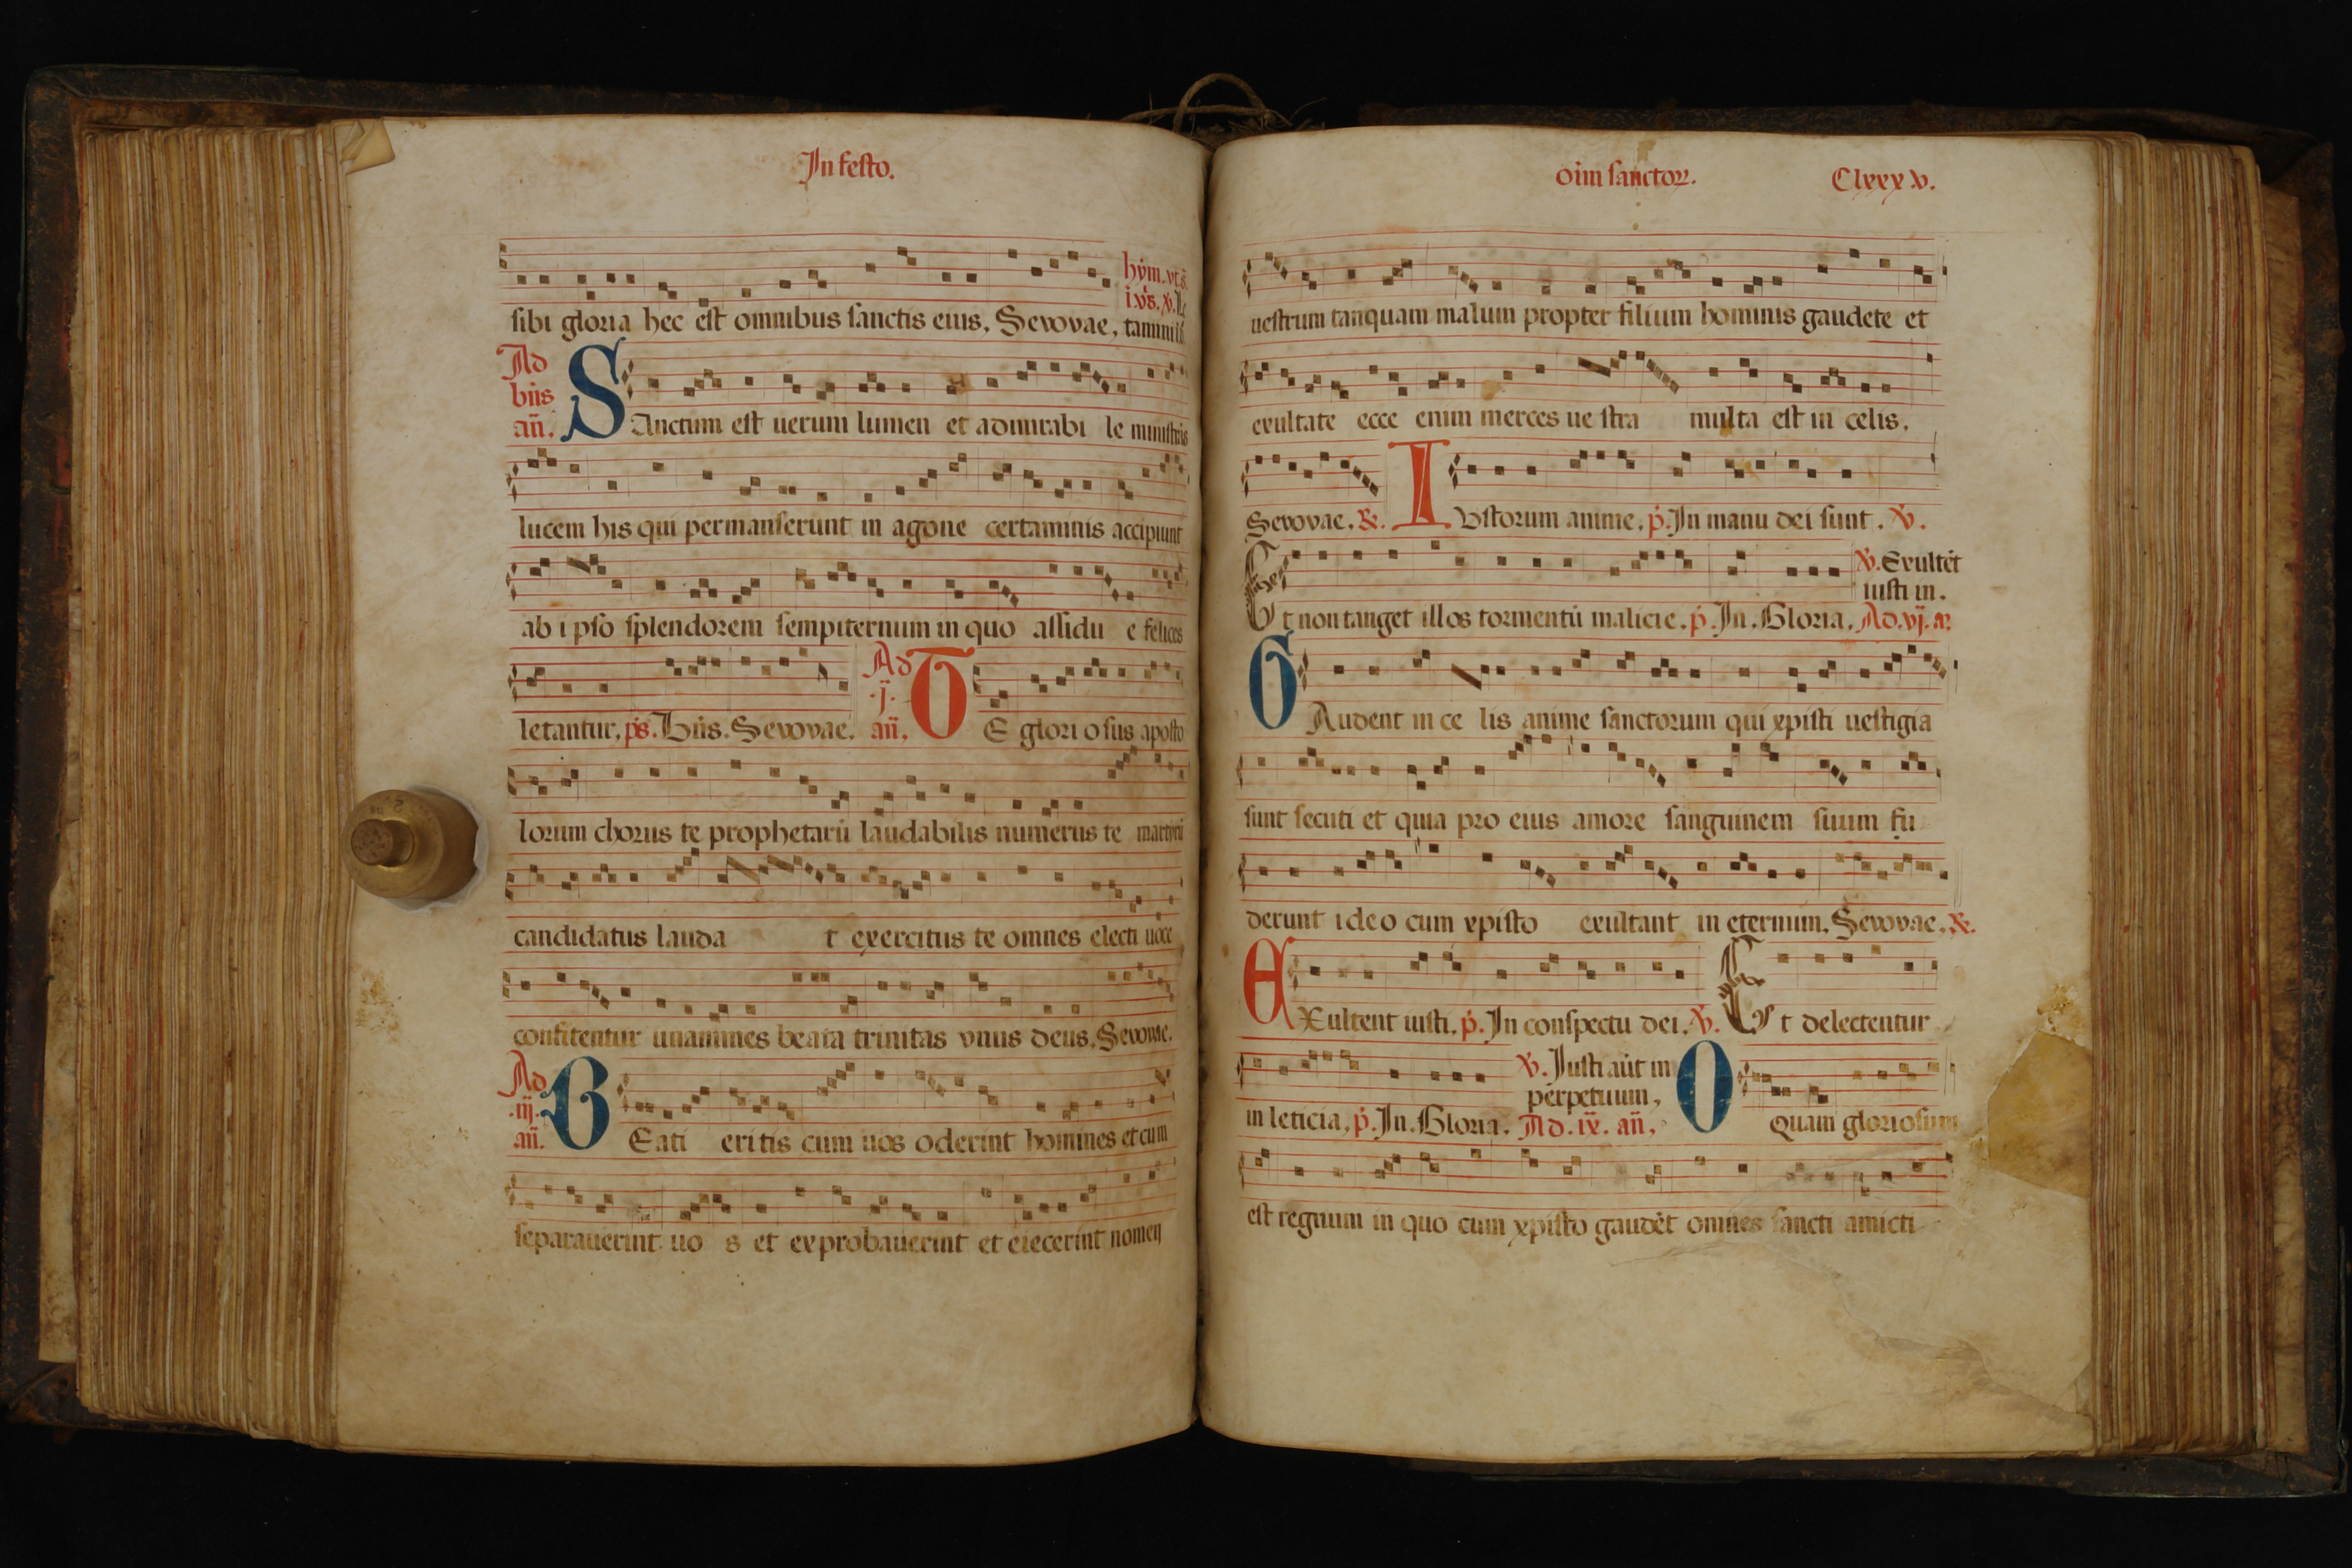 In festo.
hym. vt. s̄.
i vs̄. v. Le
sibi gloria hec est omnibus sanctis eius, Sevovae, tamini
Ad
bn̄s
an̄.
SAnctum est uerum lumen et admirabi le ministrās
lucem his qui permanserunt in agone certaminis accipiunt
ab ipso splendorem sempiternum in quo assidu e felices
letantur, ps. Bn̄s. Sevovae. Ad .j. an̄. TE glori osus aposto
lorum chorus te prophetarū laudabilis numerus te martirū
candidatus lauda t exercitus te omnes electi uoce
confitentur unanimes beata trinitas vnus deus, Sevovae.
Ad
.iij.
an̄.
BEati eritis cum uos oderint homines et cum
separauerint uo s et exprobauerint et eiecerint nomen
oim̄ sanctoꝝ. Clxxxv.
uestrum tanquam malum propter filium hominis gaudete et
exultate ecce enim merces ue stra multa est in celis,
Sevovae, ℟. IVstorum anime, p̄. In manu dei sunt. ℣.
℣. Exultēt
iusti in.
Et non tanget illos tormentū malicie, p̄. In. Gloria, Ad. vj. a.
GAudent in ce lis anime sanctorum qui xpisti uestigia
sunt secuti et quia pro eius amore sanguinem suum fu
derunt ideo cum xpisto exultant in eternum, Sevovae, ℟.
EXultent iusti, p̄. In conspectu dei, ℣. Et delectentur
℣. Iusti aūt in
perpetuum,
in leticia, p̄. In. Gloria, Ad. ix. an̄, O Quam gloriosum
est regnum in quo cum xpisto gaudēt omnes sancti amicti